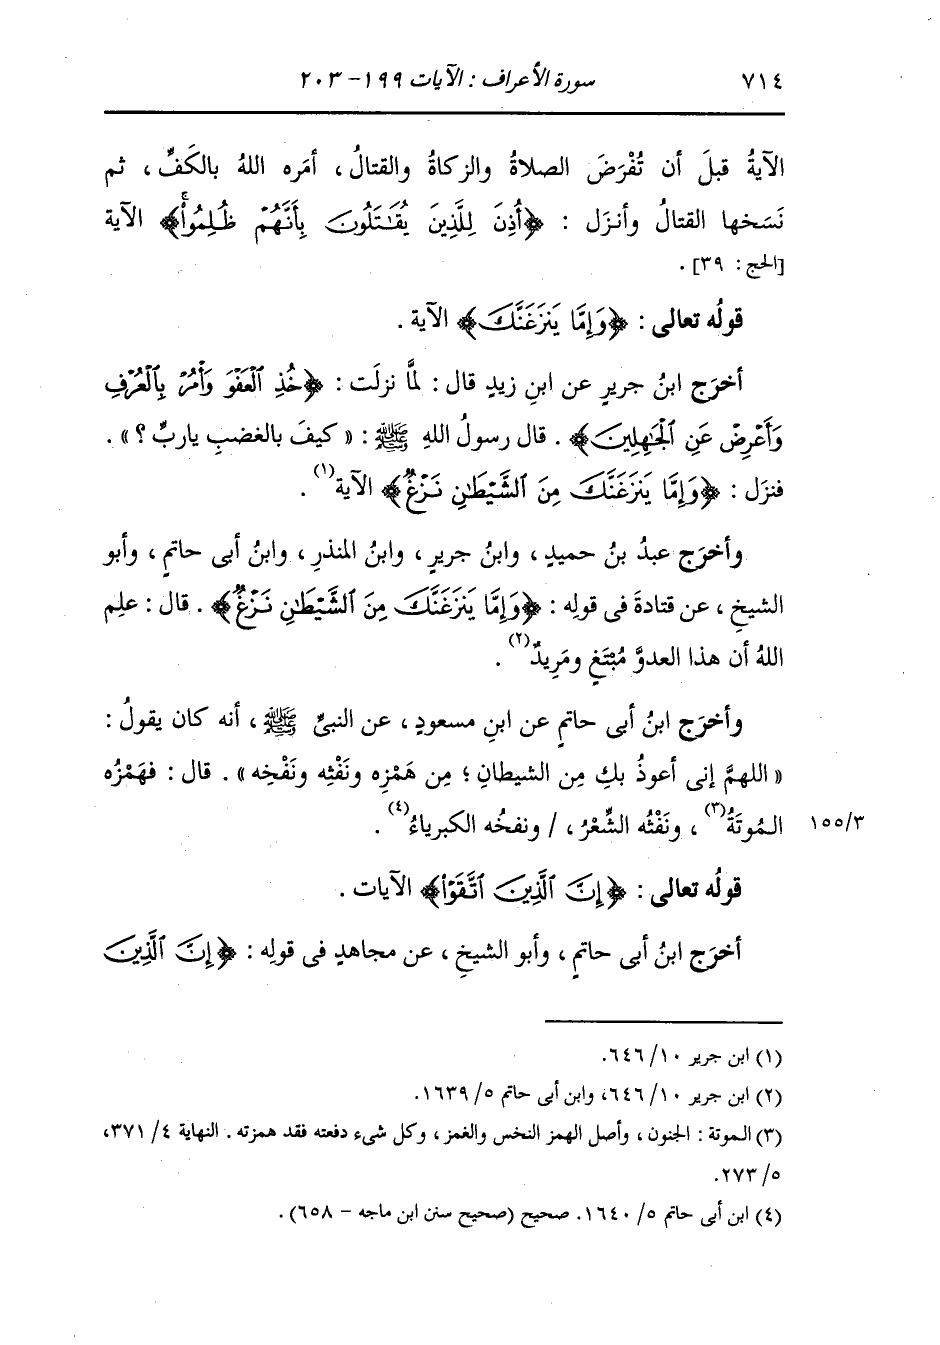 ٧١٤ سورة الأعراف : الآيات ١٩٩- ٢٠٣
الآيةُ قبلَ أن تُفْرَضَ الصلاةُ والزكاةُ والقتالُ ، أمَره اللهُ بالكَفِّ ، ثم
نَسَخها القتالُ وأنزَل : ﴿أُذِنَ لِلَّذِينَ يُقَٰتَلُونَ بِأَنَّهُمْ ظُلِمُواْۚ﴾ الآية
[الحج : ٣٩] .
قولُه تعالى : ﴿وَإِمَّا يَنزَغَنَّكَ﴾ الآية .
أخرَج ابنُ جريرٍ عن ابنِ زيدٍ قال : لمَّا نزلَت : ﴿خُذِ ٱلْعَفْوَ وَأْمُرْ بِٱلْعُرْفِ
وَأَعْرِضْ عَنِ ٱلْجَٰهِلِينَ﴾ . قال رسولُ اللهِ ﷺ : « كيفَ بالغضبِ ياربِّ ؟ » .
فنزَل : ﴿وَإِمَّا يَنزَغَنَّكَ مِنَ ٱلشَّيْطَٰنِ نَزْغٌ﴾ الآية(١) .
وأخرَج عبدُ بنُ حميدٍ ، وابنُ جريرٍ ، وابنُ المنذرِ ، وابنُ أبى حاتمٍ ، وأبو
الشيخِ ، عن قتادةَ فى قولِه : ﴿وَإِمَّا يَنزَغَنَّكَ مِنَ ٱلشَّيْطَٰنِ نَزْغٌ﴾ . قال : علِم
اللهُ أن هذا العدوَّ مُبْتَغٍ ومَرِيدٌ(٢) .
وأخرَج ابنُ أبى حاتمٍ عن ابنِ مسعودٍ ، عن النبىِّ ﷺ ، أنه كان يقولُ :
« اللهمَّ إنى أعوذُ بك مِن الشيطانِ ؛ مِن هَمْزِه ونَفْثِه ونَفْخِه » . قال : فهَمْزُه
المُوتَةُ(٣) ، ونَفْثُه الشِّعْرُ ، / ونفخُه الكبرياءُ(٤) . ١٥٥/٣
قولُه تعالى : ﴿إِنَّ ٱلَّذِينَ ٱتَّقَوْاْ﴾ الآيات .
أخرَج ابنُ أبى حاتمٍ ، وأبو الشيخِ ، عن مجاهدٍ فى قولِه : ﴿إِنَّ ٱلَّذِينَ
(١) ابن جرير ١٠/ ٦٤٦.
(٢) ابن جرير ١٠/ ٦٤٦، وابن أبى حاتم ٥/ ١٦٣٩.
(٣) الموتة : الجنون ، وأصل الهمز النخس والغمز ، وكل شىء دفعته فقد همزته . النهاية ٤/ ٣٧١،
٥/ ٢٧٣.
(٤) ابن أبى حاتم ٥/ ١٦٤٠. صحيح (صحيح سنن ابن ماجه – ٦٥٨) .